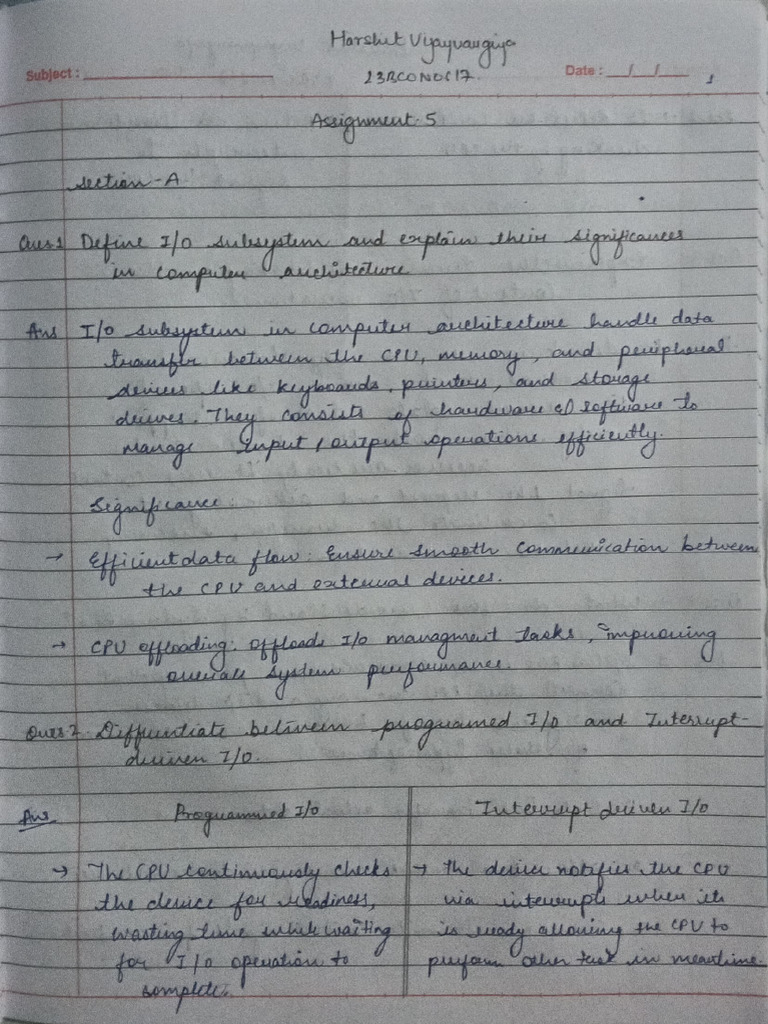 Harshit Vijayvargiya
Subject :
Date : / /
1
Assignment-5
Section-A
Ques1 Define I/O subsystem and explain their significances
in computer architecture
Ans I/O subsystem in computer architecture handle data
transfer between the CPU, memory, and peripheral
devices like keyboards, printers, and storage
drives. They consists of hardware & software to
manage input/output operations efficiently.
Significance:
→ Efficient data flow: Ensure smooth communication between
the CPU and external devices.
→ CPU offloading: offloads I/O managment tasks, improving
overall system performance.
Ques2. Differentiate between programed I/O and Interrupt-
driven I/O.
Ans Programmed I/O Interrupt driven I/O
→ The CPU continuously checks
the device for readiness,
wasting time while waiting
for I/O operation to
complete.
→ The device notifies the CPU
via interrupts when its
is ready allowing the CPU to
perform other task in meantime.